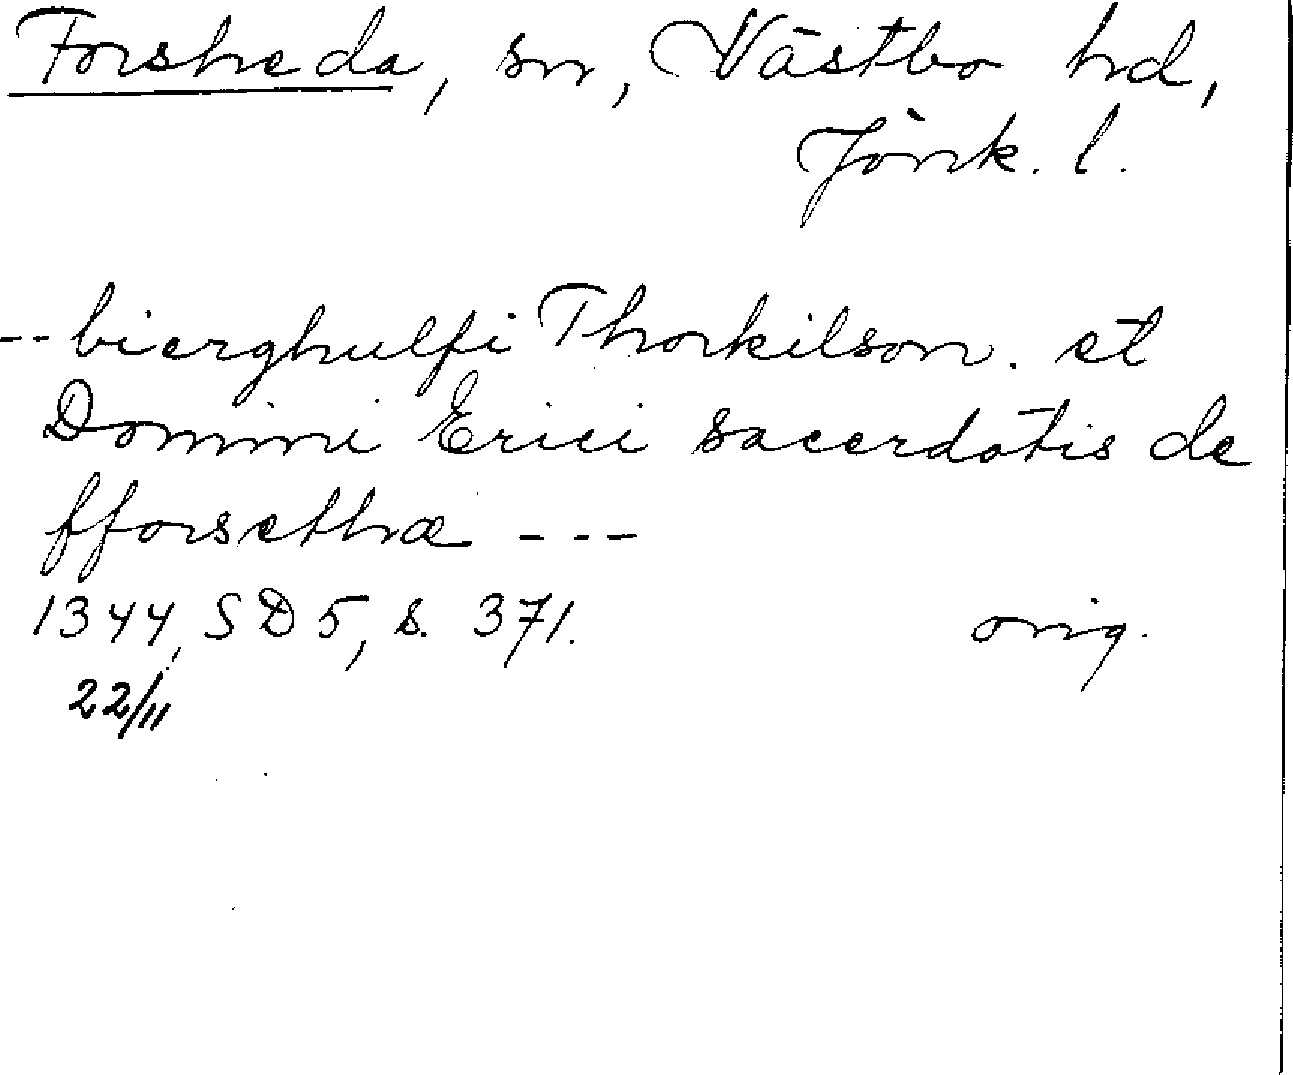 Forsheda, sn, Västbo hd,
Jönk. l.
-- bierghulfi Thorkilson. et
Domini Erici sacerdotis de
fforsethæ ---
1344, SD 5, s. 371. orig.
22/11